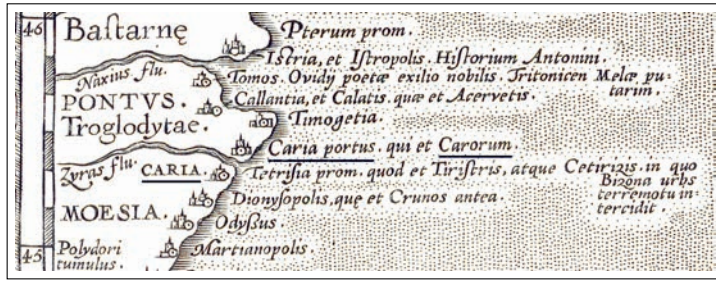 46
Baſtarnę
Pterum prom.
Iſtria, et Iſtropolis. Hiſtorium Antonini.
Naxius flu.
Tomos. Ovidy poetæ exilio nobilis. Tritonicen Melæ pu-
tarim.
PONTVS.
Callantia, et Calatis. quæ et Acervetis.
Troglodytae.
Timogetia.
Caria portus. qui et Carorum.
Zyras flu.
CARIA.
Tetriſia prom. quod et Tiriſtris, atque Cetirizis. in quo
Bizona urbs
terremotu in-
tercidit.
Dionyſopolis, quę et Crunos antea.
MOESIA.
Odyſſus.
45
Polydori
tumulus.
Martianopolis.